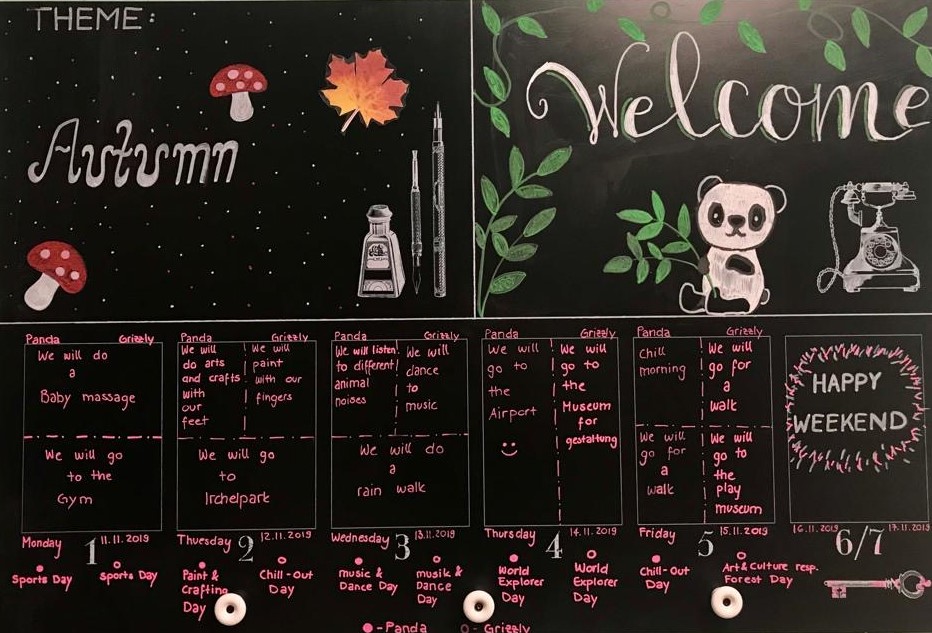 THEME:
Autumn
Welcome
Panda Grizzly
We will do
a
Baby massage
We will go
to the
Gym
Monday 1 11.11.2019
Sports Day
Sports Day
Panda Grizzly
We will
do arts
and crafts
with
our
feet
We will
paint
with our
fingers
We will go
to
Irchelpark
Thuesday 2 12.11.2019
Paint &
Crafting
Day
Chill-Out
Day
Panda Grizzly
We will listen
to different
animal
noises
We will
dance
to
music
We will do
a
rain walk
Wednesday 3 13.11.2019
music &
Dance Day
musik &
Dance
Day
Panda Grizzly
We will
go to
the
Airport
We will
go to
the
Museum
for
gestaltung
Thursday 4 14.11.2019
World
Explorer
Day
World
Explorer
Day
Panda Grizzly
Chill
morning
We will
go for
a
walk
We will
go for
a
walk
We will
go to
the
play
museum
Friday 5 15.11.2019
Chill-Out
Day
Art & Culture resp.
Forest Day
HAPPY
WEEKEND
16.11.2019 6/7 17.11.2019
- Panda - Grizzly